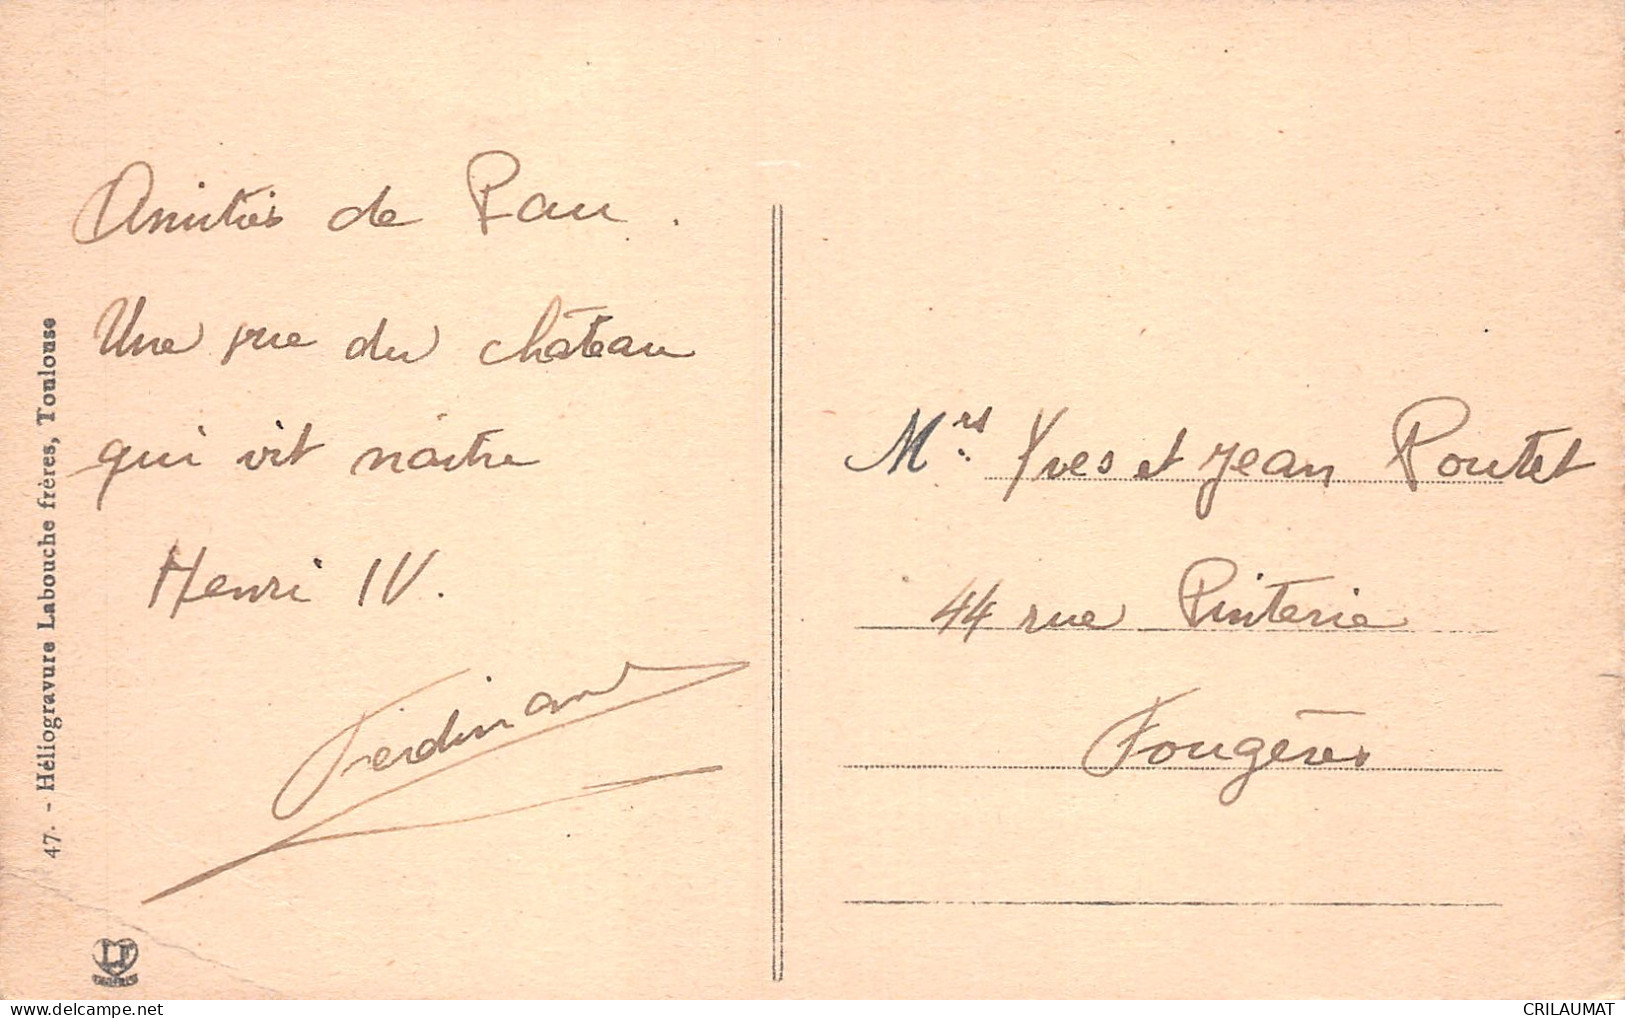 Amitiés de Pau.
Une vue du château
qui vit naître
Henri IV.
Ferdinand
Mrs Yves et Jean Poutet
44 rue Pinterie
Fougères
47. - Héliogravure Labouche frères, Toulouse
LF
CRILAUMAT